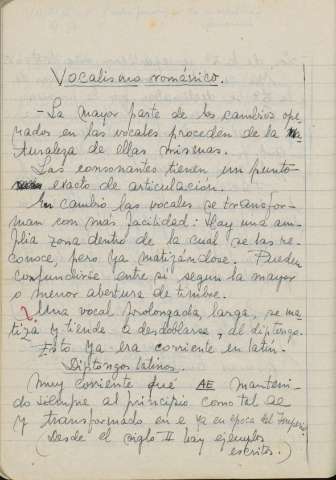 Vocalismo románico.
-La mayor parte de los cambios ope-
rados en las vocales proceden de la na-
turaleza de ellas mismas.
Las consonantes tienen un punto
exacto de articulación.
En cambio las vocales se transfor-
man con más facilidad: Hay una am-
plia zona dentro de la cual se las re-
conoce, pero ya matizandose. Pueden
confundirse entre sí segun la mayor
o menor abertura de timbre.
Una vocal prolongada, larga, se ma-
tiza y tiende a desdoblarse, al diptongo.
Esto ya era corriente en latín.
Diptongos latinos.
Muy corriente que AE manteni-
do siempre al principio como tal ae
y transformado en e ya en época del Imperio
(Desde el siglo II hay ejemplos
escritos.)